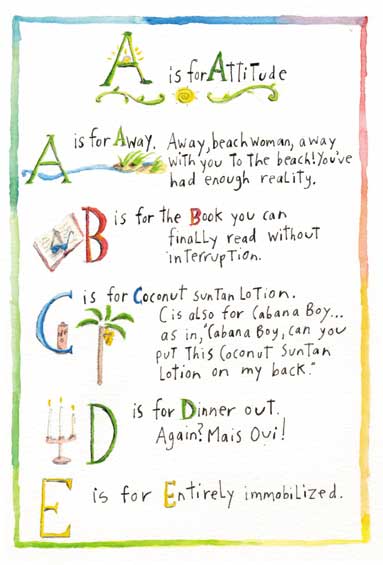 A is for Attitude
A is for Away. Away, beach woman, away
with you to the beach! You've
had enough reality.
B is for the Book you can
finally read without
interruption.
C is for Coconut Suntan Lotion.
C is also for Cabana Boy...
as in, "Cabana Boy, can you
put this Coconut Suntan
Lotion on my back."
D is for Dinner out.
Again? Mais Oui!
E is for Entirely immobilized.